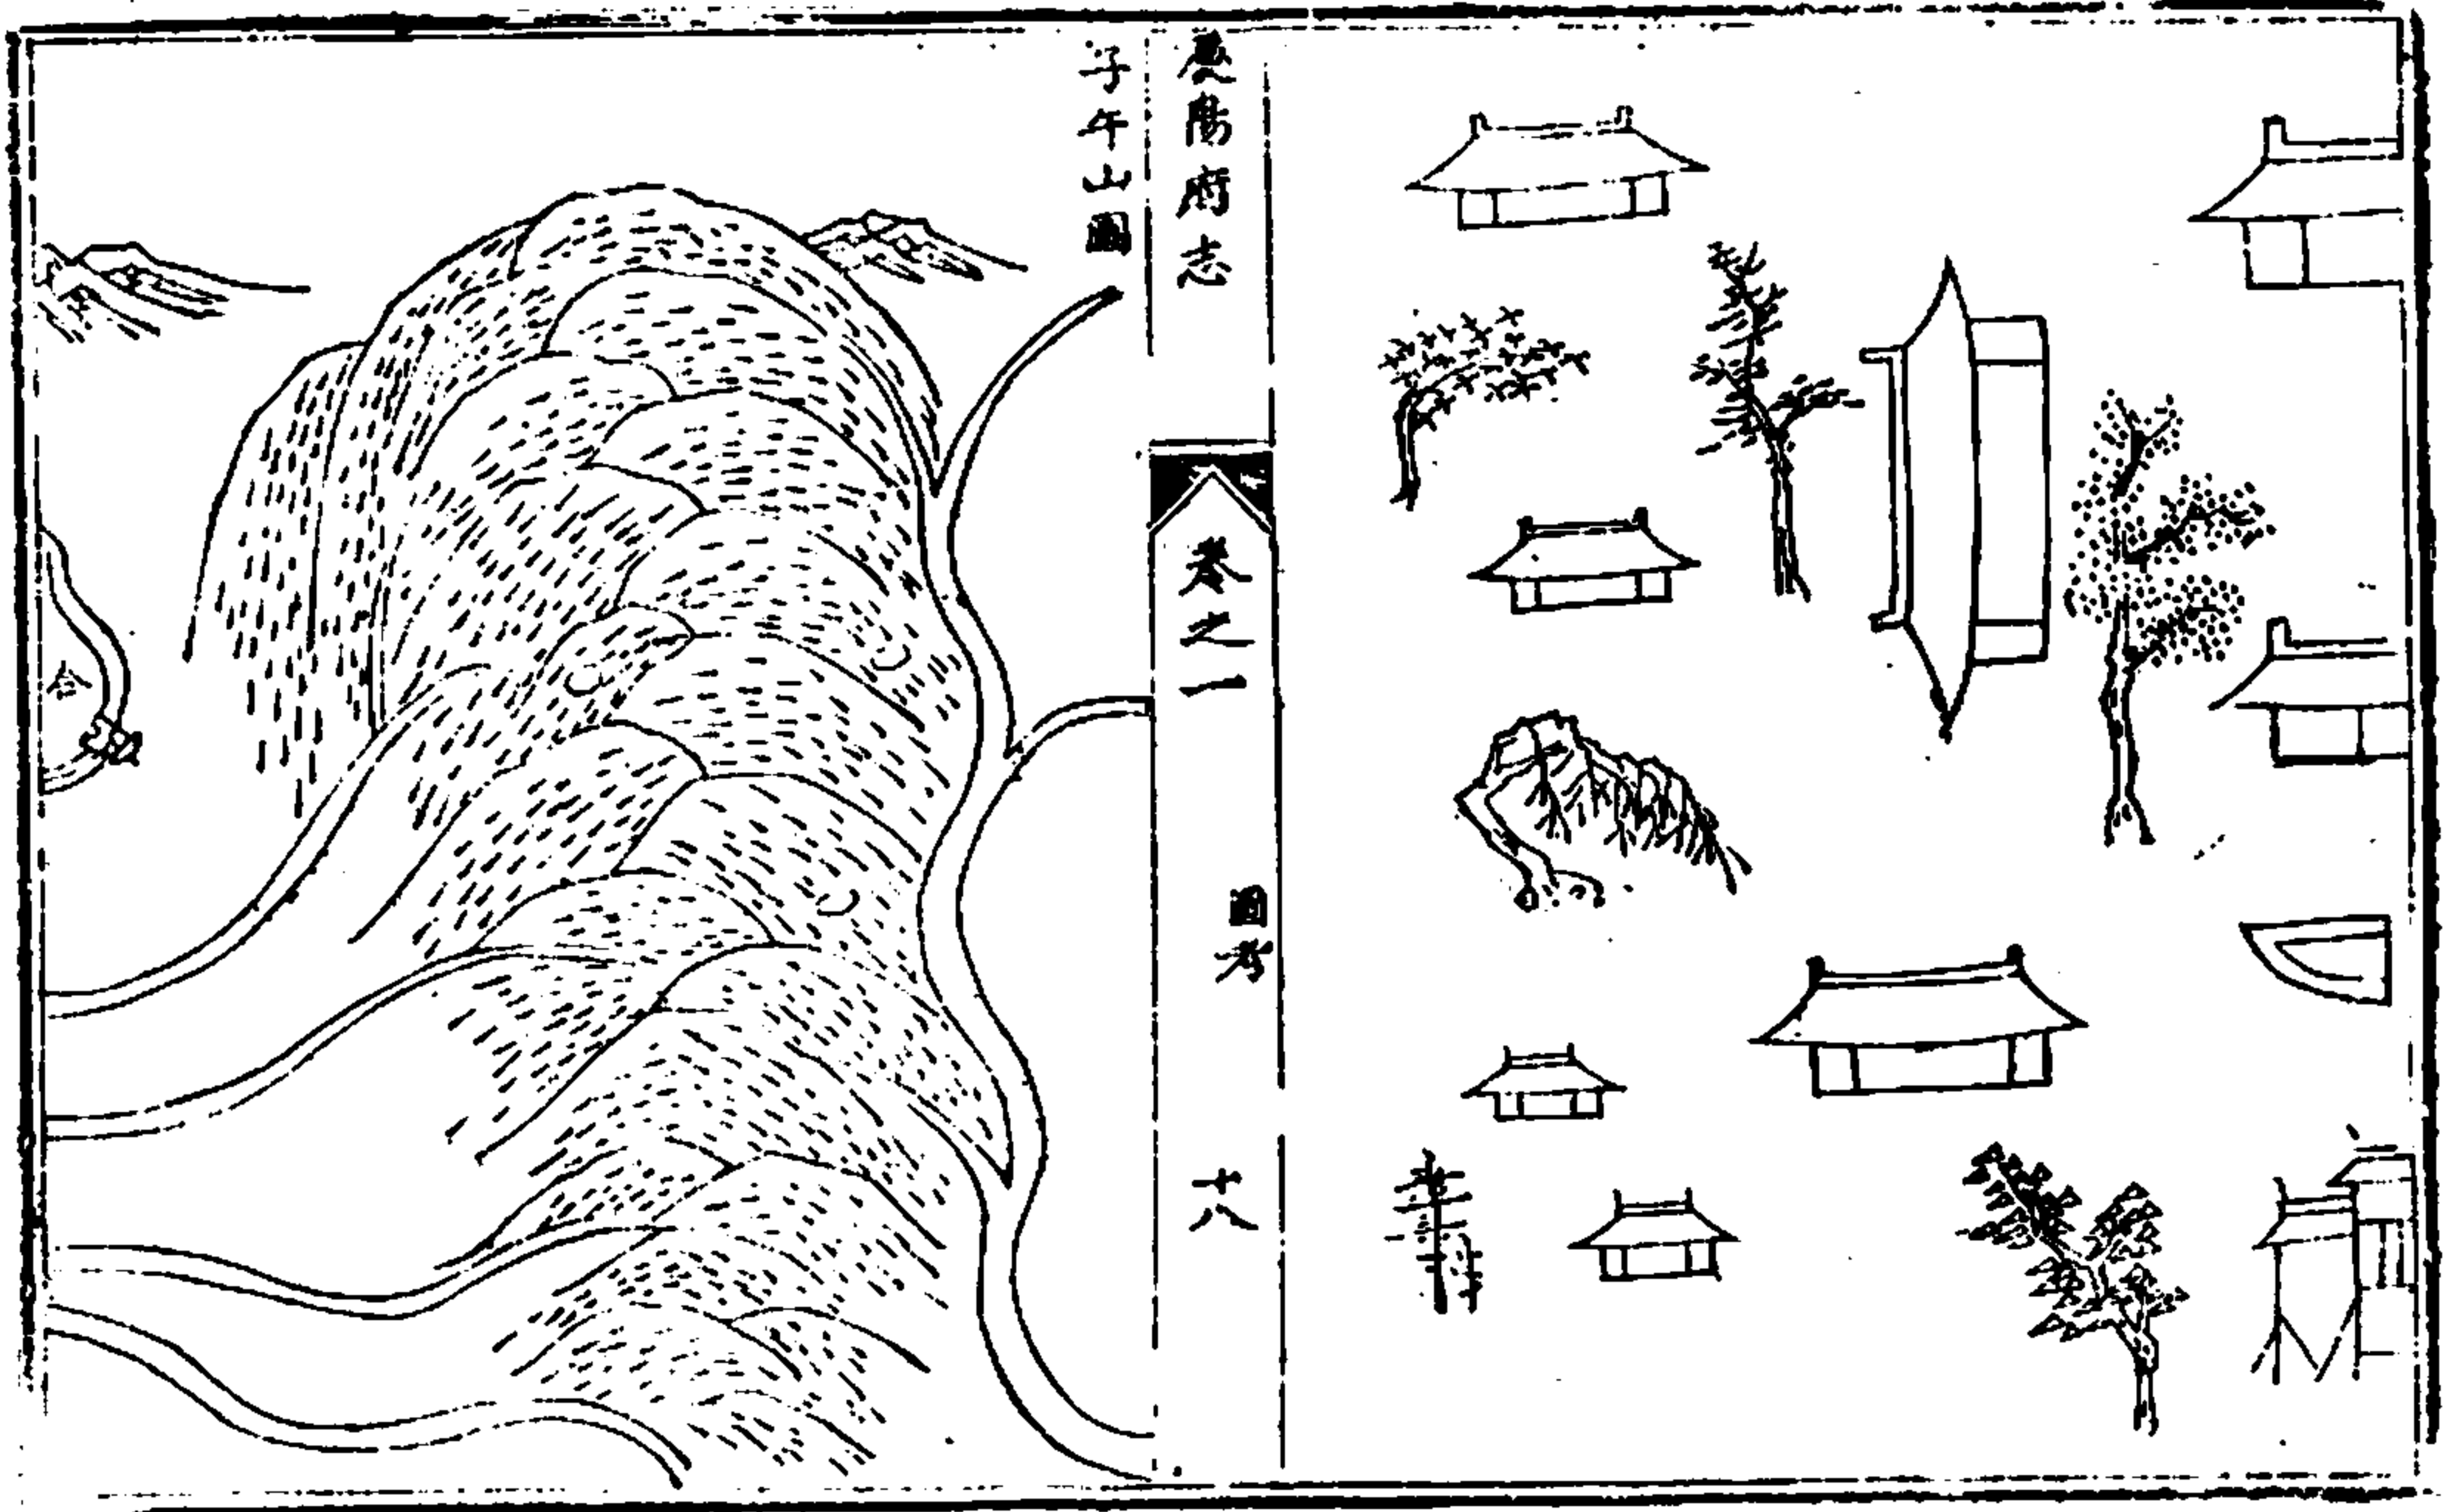 慶陽府志
卷之一
圖考
十八
子午山圖